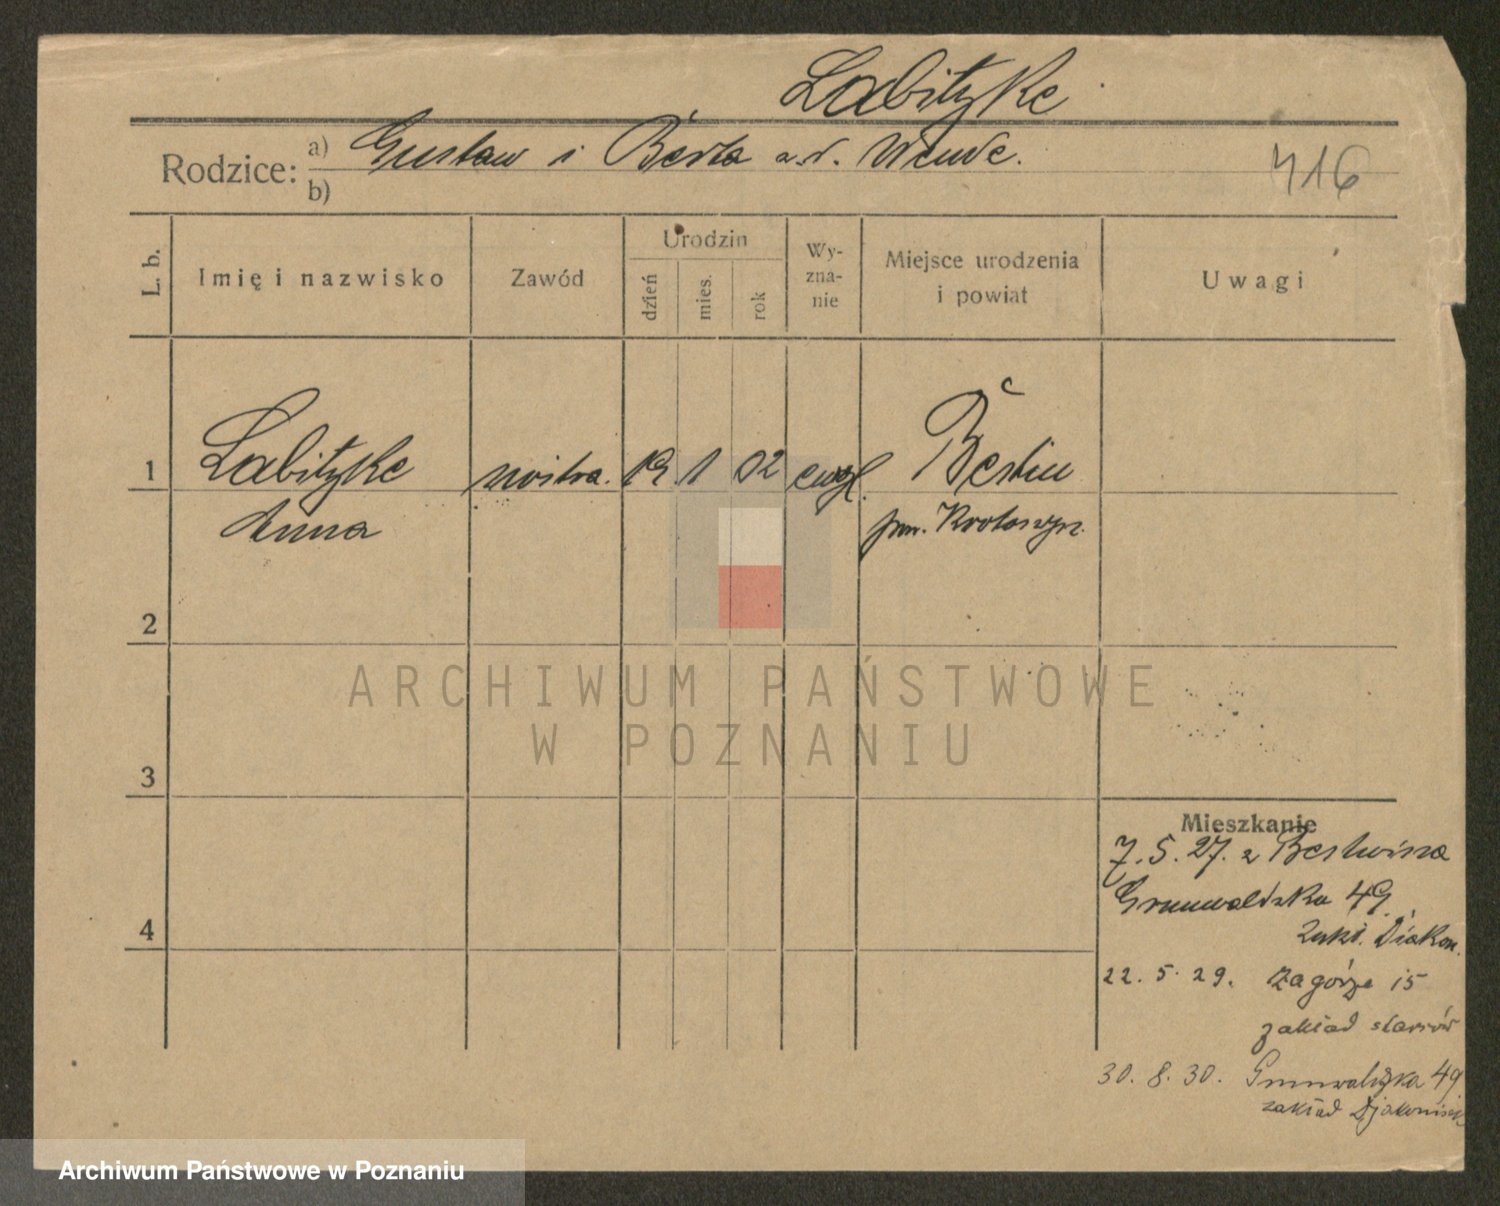 Labitzke
Rodzice: a) Gustaw i Berta z d. Wende.
b)
416
L. b.
Imię i nazwisko
Zawód
Urodzin
dzień
mies.
rok
Wy-
zna-
nie
Miejsce urodzenia
i powiat
Uwagi
1
Labitzke
Anna
siostra.
19 1 02
ewgl.
Bestwin
pow. Krotoszyn.
2
3
4
Mieszkanie
7. 5. 27. z Bestwina
Grunwaldzka 49
Zakł. Diakon.
22. 5. 29. Zagórze 15
zakład starców
30. 8. 30. Grunwaldzka 49
zakład Djakonisek
ARCHIWUM PAŃSTWOWE
W POZNANIU
Archiwum Państwowe w Poznaniu